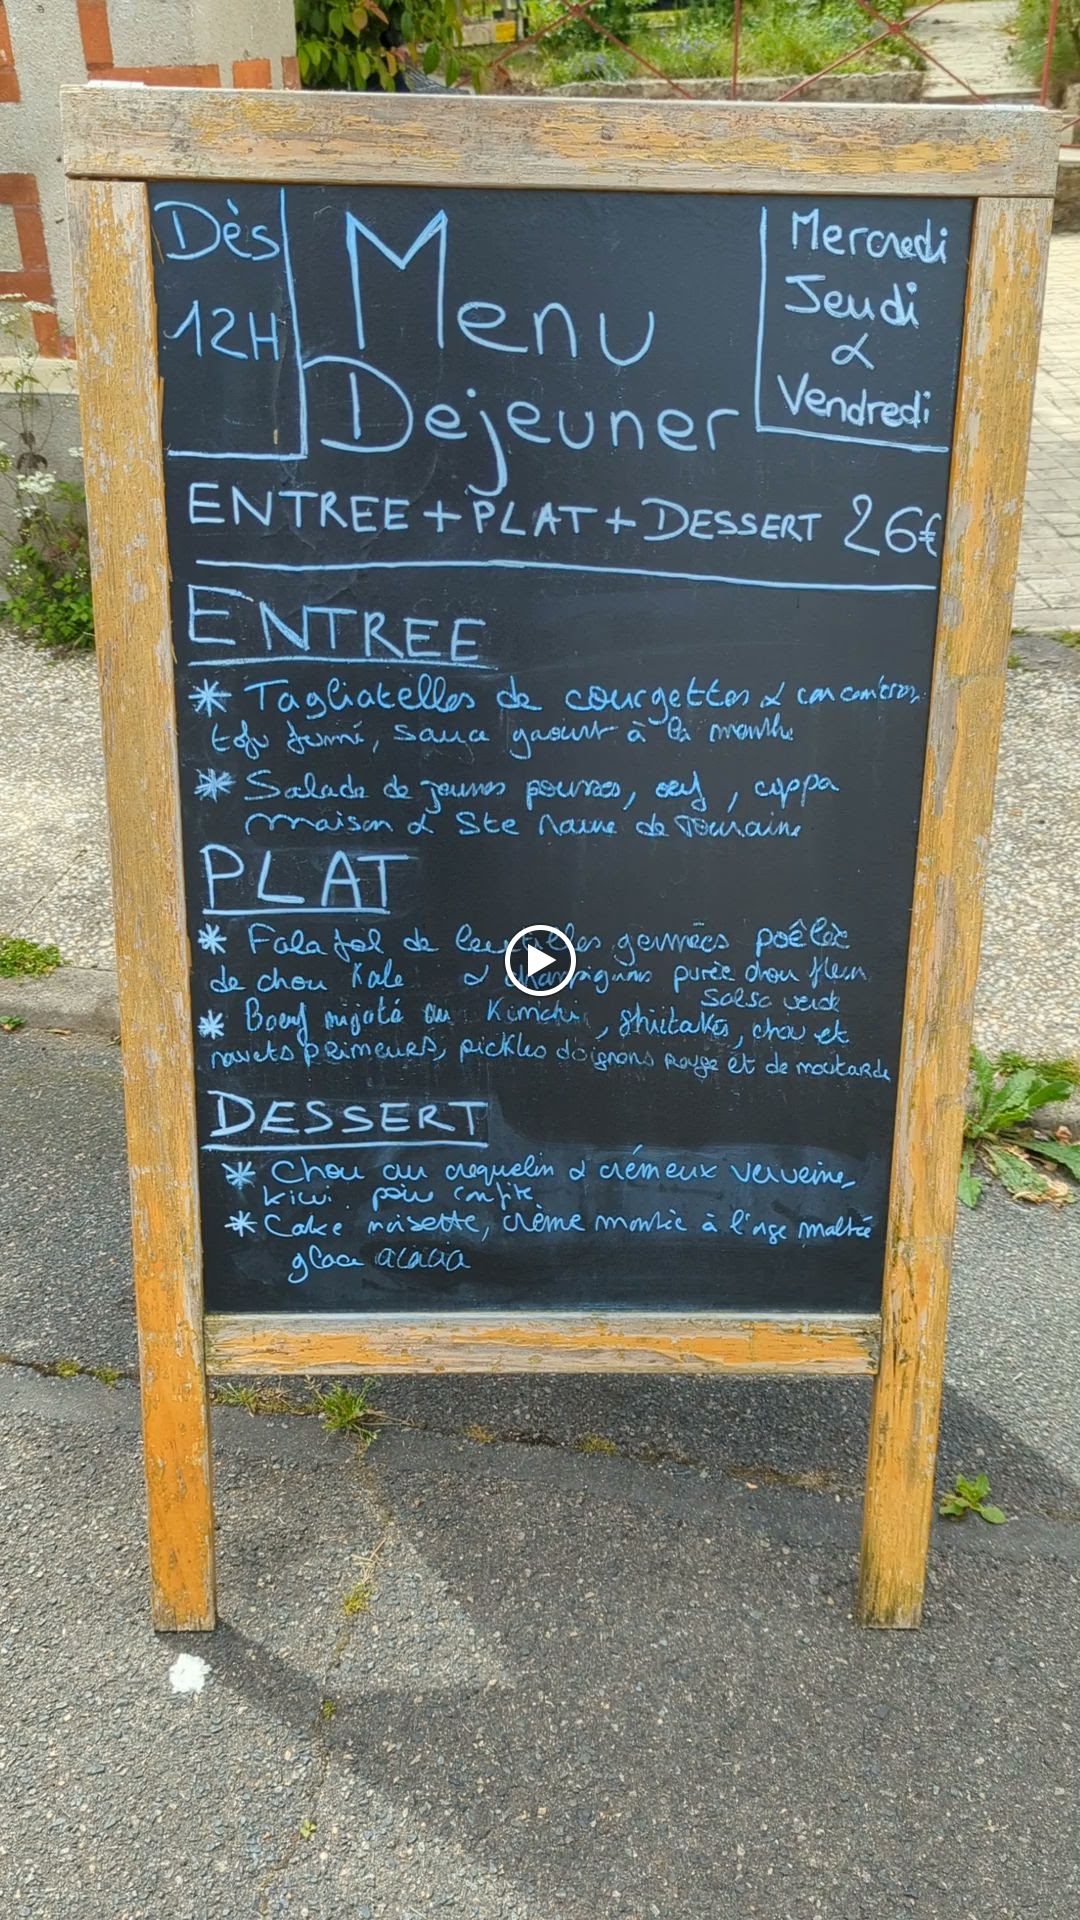 Dès
12H
Menu
Dejeuner
Mercredi
Jeudi
&
Vendredi
ENTREE + PLAT + DESSERT 26€
ENTREE
* Tagliatelles de courgettes & concombres,
tofu fumé, sauce yaourt à la menthe
* Salade de jeunes pousses, oeuf, coppa
maison & Ste Maure de Touraine
PLAT
* Falafel de lentilles germées poêlée
de chou Kale & champignons purée chou fleur
salsa verde
* Boeuf mijoté au Kimchi, shiitakés, chou et
navets primeurs, pickles doignons rouge et de moutarde
DESSERT
* Chou au craquelin & crémeux verveine,
kiwi poire confite
* Cake noisette, crème montée à l'orge maltée
glace acacia